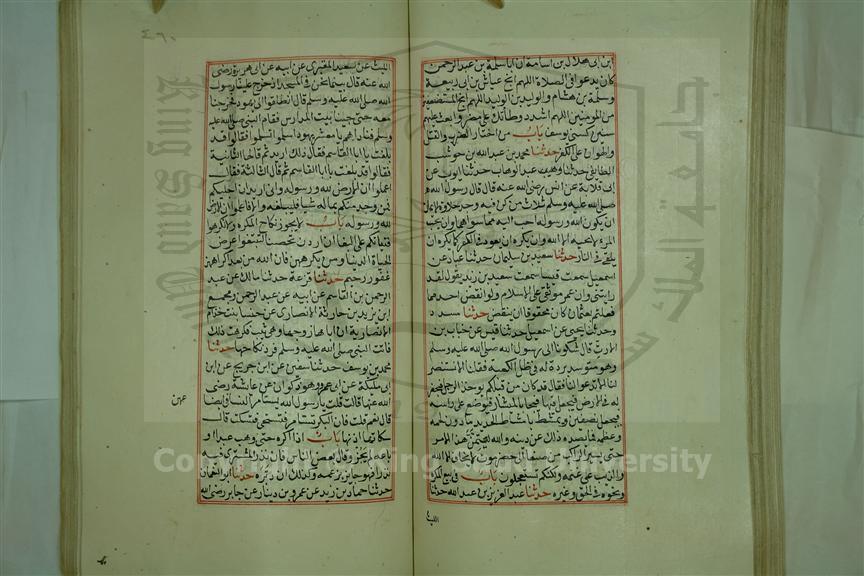 ابن ابى هلال بن اسامة ان ابا سلمة بن عبد الرحمن
كان يدعو في الصلاة اللهم انج عياش بن ابى ربيعة
وسلمة بن هشام والوليد بن الوليد اللهم انج المستضعفين
من المومنين اللهم اشدد وطأتك على مضر وابعث عليهم
سنين كسنى يوسف باب من اختار الضرب والقتل
والهوان على الكفر حدثنا محمد بن عبد الله بن حوشب
الطائفي حدثنا عبد الوهاب حدثنا ايوب عن
ابى قلابة عن انس رضى الله عنه قال قال رسول الله
صلى الله عليه وسلم ثلاث من كن فيه وجد حلاوة الايمان
ان يكون الله ورسوله احب اليه مما سواهما وان يحب
المرء لا يحبه الا لله وان يكره ان يعود في الكفر كما يكره ان
يلقى في النار حدثنا سعيد بن سليمان حدثنا عباد عن
اسمعيل سمعت قيسا سمعت سعيد بن زيد يقول لقد
رايتنى وان عمر موثقى على الاسلام ولو انقض احد مما
فعلتم بعثمان كان محقوقا ان ينقض حدثنا مسدد
وحدثنا يحيى عن اسمعيل حدثنا قيس عن خباب بن
الارت قال شكونا الى رسول الله صلى الله عليه وسلم
وهو متوسد بردة له في ظل الكعبة فقلنا الا تستنصر
لنا الا تدعو لنا فقال قد كان من قبلكم يوخذ الرجل فيحفر
له في الارض فيجعل فيها فيجا بالمنشار فيوضع على راسه
فيجعل نصفين ويمشط بامشاط الحديد ما دون لحمه
وعظمه فما يصده ذلك عن دينه والله ليتمن هذا الامر
حتى يسير الراكب من صنعا الى حضرموت لا يخاف الا الله
والذئب على غنمه ولكنكم تستعجلون باب في بيع المكره
ونحوه في الحق وغيره حدثنا عبد العزيز بن عبد الله حدثنا
الليث
٤٦٠
الليث عن سعيد المقبرى عن ابيه عن ابى هريرة رضى
الله عنه قال بينما نحن في المسجد اذ خرج علينا رسول
الله صلى الله عليه وسلم قال انطلقوا الى يهود فخرجنا
معه حتى جينا بيت المدارس فقام النبى صلى الله عليه
وسلم فناداهم يا معشر يهود اسلموا تسلموا فقالوا قد
بلغت يا ابا القاسم فقال ذلك اريد ثم قالها الثانية
فقالوا قد بلغت يا ابا القاسم ثم قال الثالثة فقال
اعلموا ان الارض لله ورسوله وانى اريد ان اجليكم
فمن وجد منكم بماله شيا فليبعه والا فاعلموا ان الارض
لله ورسوله باب لا يجوز نكاح المكره ولا تكرهوا
فتياتكم على البغا ان اردن تحصنا لتبتغوا عرض
الحياة الدنيا ومن يكرههن فان الله من بعد اكراههن
غفور رحيم حدثنا قزعة حدثنا مالك عن عبد
الرحمن بن القاسم عن ابيه عن عبد الرحمن ومجمع
ابنى يزيد بن حارثة الانصارى عن خنسا بنت خذام
الانصارية ان اباها زوجها وهى ثيب فكرهت ذلك
فاتت النبى صلى الله عليه وسلم فرد نكاحها حدثنا
محمد بن يوسف حدثنا سفين عن ابن جريج عن ابن
ابى مليكة عن ابى عمرو هو ذكوان عن عائشة رضى
الله عنها قالت قلت يا رسول الله يستامر النسا في ابضاعهن
قال نعم قلت فان البكر تستامر فتستحى فتسكت قال
سكاتها اذنها باب اذا اكره حتى وهب عبدا او
باعه لم يجز وقال بعض الناس فان نذر المشترى فيه
نذرا فهو جايز بزعمه وكذلك ان دبره حدثنا ابو النعمان
حدثنا حماد بن زيد عن عمرو بن دينار عن جابر رضى الله
Copyright © King Saud University
King Saud University
جامعة الملك سعود